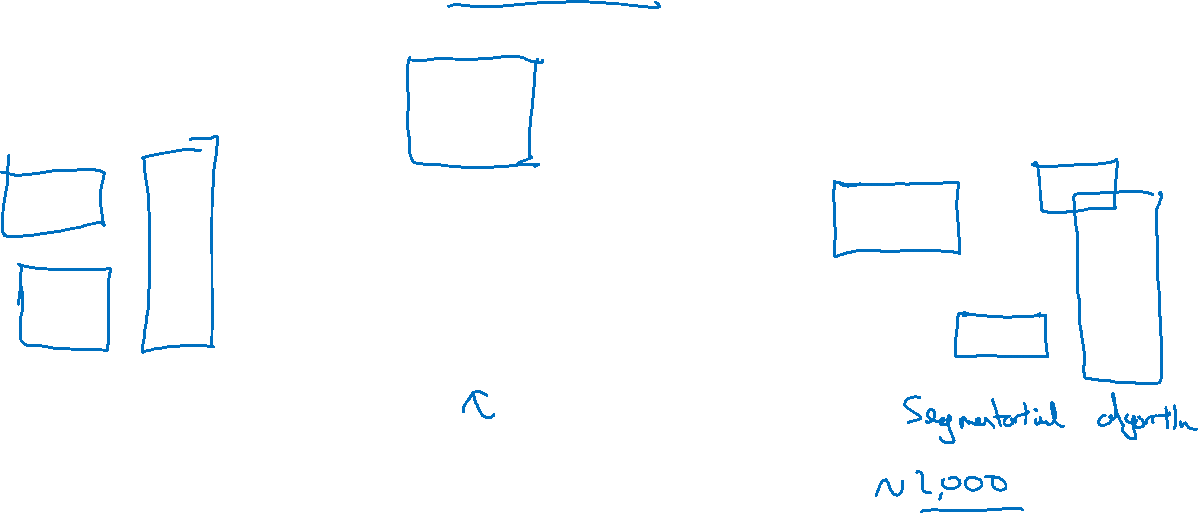 Segmentation algorithm
~2,000